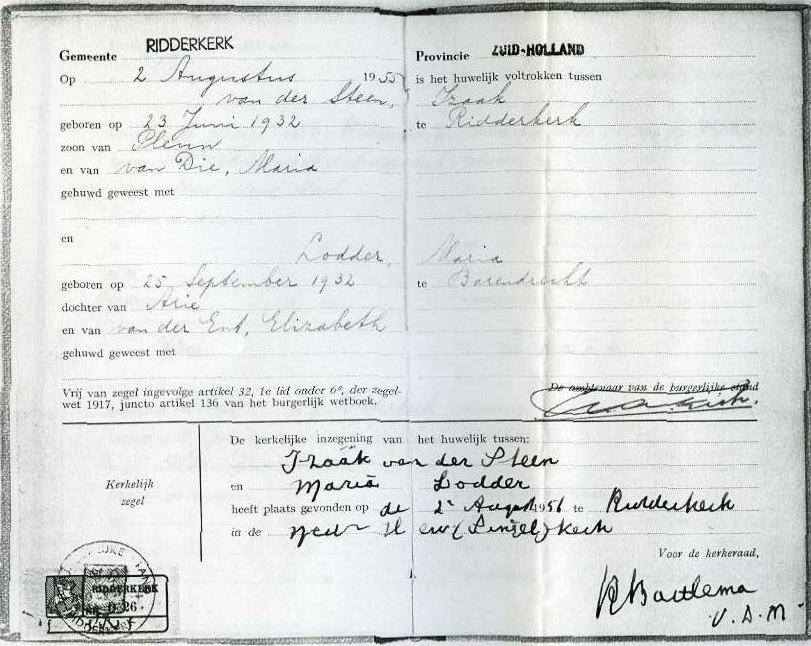 Gemeente RIDDERKERK Provincie ZUID-HOLLAND
Op 2 Augustus 1955 is het huwelijk voltrokken tussen
van der Steen, Izaak
geboren op 23 Juni 1932 te Ridderkerk
zoon van Pleun
en van van Die, Maria
gehuwd geweest met
en
Lodder, Maria
geboren op 25 September 1932 te Barendrecht
dochter van Arie
en van van der Ent, Elizabeth
gehuwd geweest met
Vrij van zegel ingevolge artikel 32, 1e lid onder 6°, der zegel-
wet 1917, juncto artikel 136 van het burgerlijk wetboek.
De ambtenaar van de burgerlijke stand
De kerkelijke inzegening van het huwelijk tussen:
Izaäk van der Steen
en Maria Lodder
heeft plaats gevonden op de 2e August 195 te Ridderkerk
in de Ned Herv (Singel) kerk
Kerkelijk
zegel
Voor de kerkeraad,
V.D.M.
RIDDERKERK